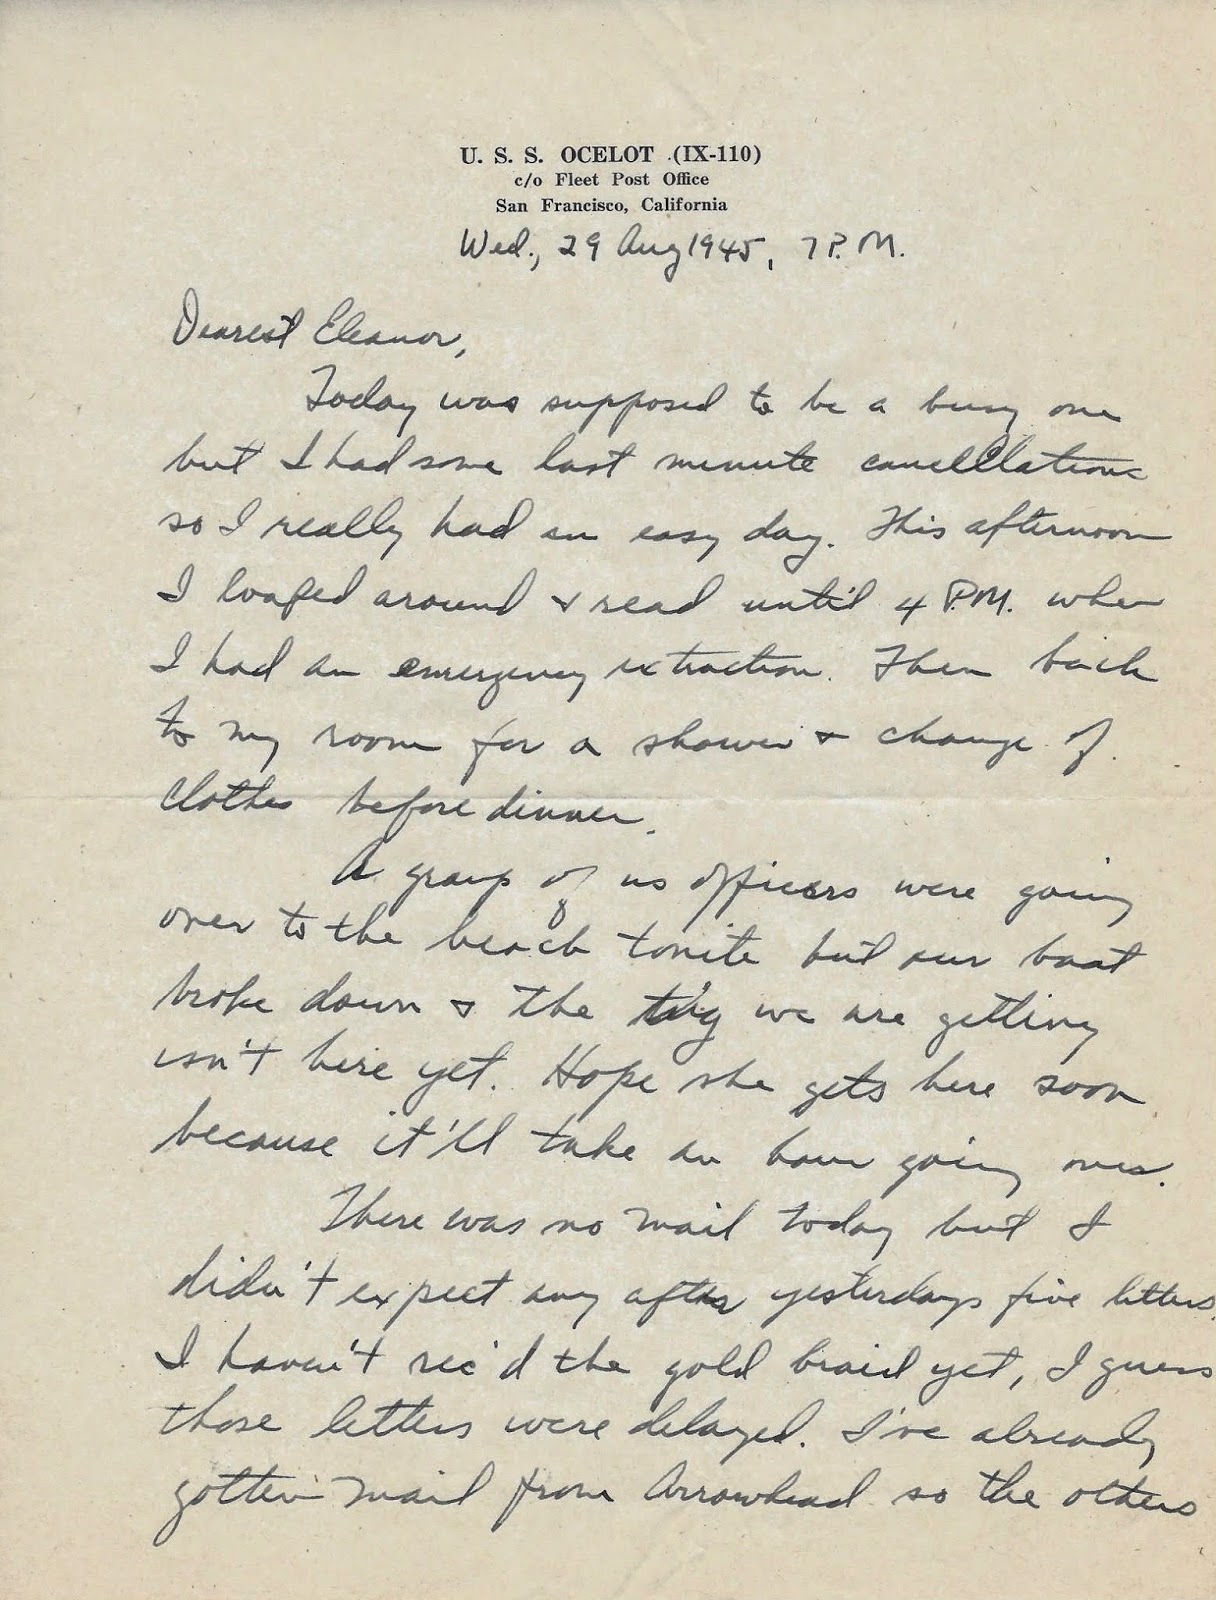 U. S. S. OCELOT (IX-110)
c/o Fleet Post Office
San Francisco, California
Wed., 29 Aug 1945, 7 P.M.
Dearest Eleanor,
Today was supposed to be a busy one
but I had some last minute cancelllations
so I really had an easy day. This afternoon
I loafed around & read until 4 P.M. when
I had an emergency extraction. Then back
to my room for a shower & change of
clothes before dinner.
A group of us officers were going
over to the beach tonite but our boat
broke down & the tug we are getting
isn't here yet. Hope she gets here soon
because it'll take an hour going over.
There was no mail today but I
didn't expect any after yesterdays five letters.
I haven't rec'd the gold braid yet, I guess
those letters were delayed. I've already
gotten mail from Arrowhead so the others